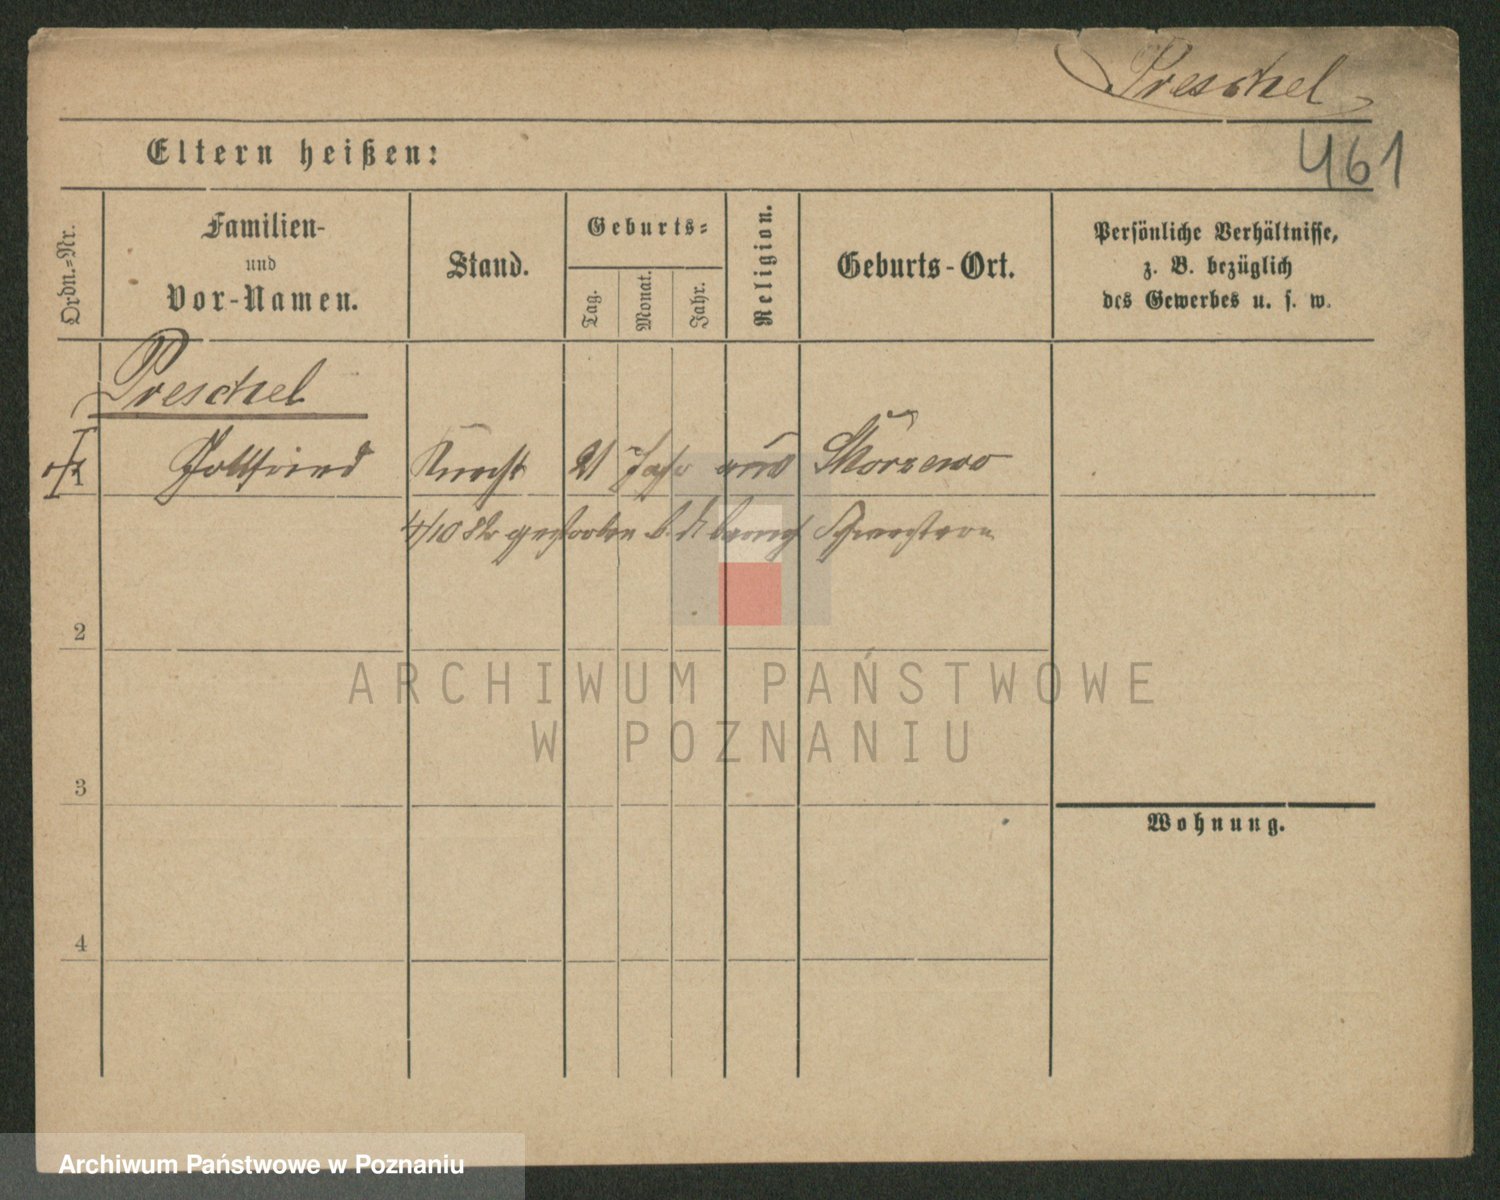 Preschel
461
Eltern heißen:
Ordn.-Nr.
Familien-
und
Vor-Namen.
Stand.
Geburts-
Tag.
Monat.
Jahr.
Religion.
Geburts-Ort.
Persönliche Verhältnisse,
z. B. bezüglich
des Gewerbes u. s. w.
Preschel
1 Gottfried Knecht 21 Jahr aus Skorzewo
4/10 82 gestorben b. d.
2
3
Wohnung.
4
ARCHIWUM PAŃSTWOWE
W POZNANIU
Archiwum Państwowe w Poznaniu